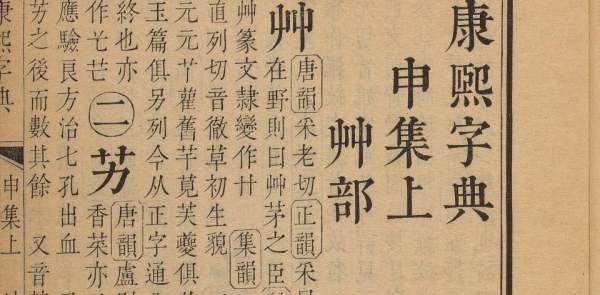 康熙字典
申集上
艸部
艸
唐韻采老切正韻采
在野則曰艸茅之臣
艸篆文隷變作廾 集韻
直列切音徹草初生貌
雚舊芊莧芙夔俱
玉篇俱另列今从正字通
終也亦
作
二
艻
唐韻盧
香菜亦
應驗良方治七孔出血
艻之後而數其餘 又音
康熙字典
申集上